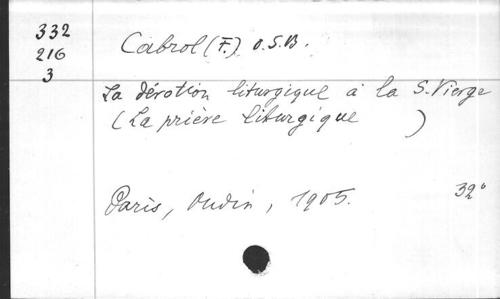 332
216
3
Cabrol (F.) O.S.B.
La dévotion liturgique à la S. Vierge
(La prière liturgique )
Paris, Oudin, 1905. 32°